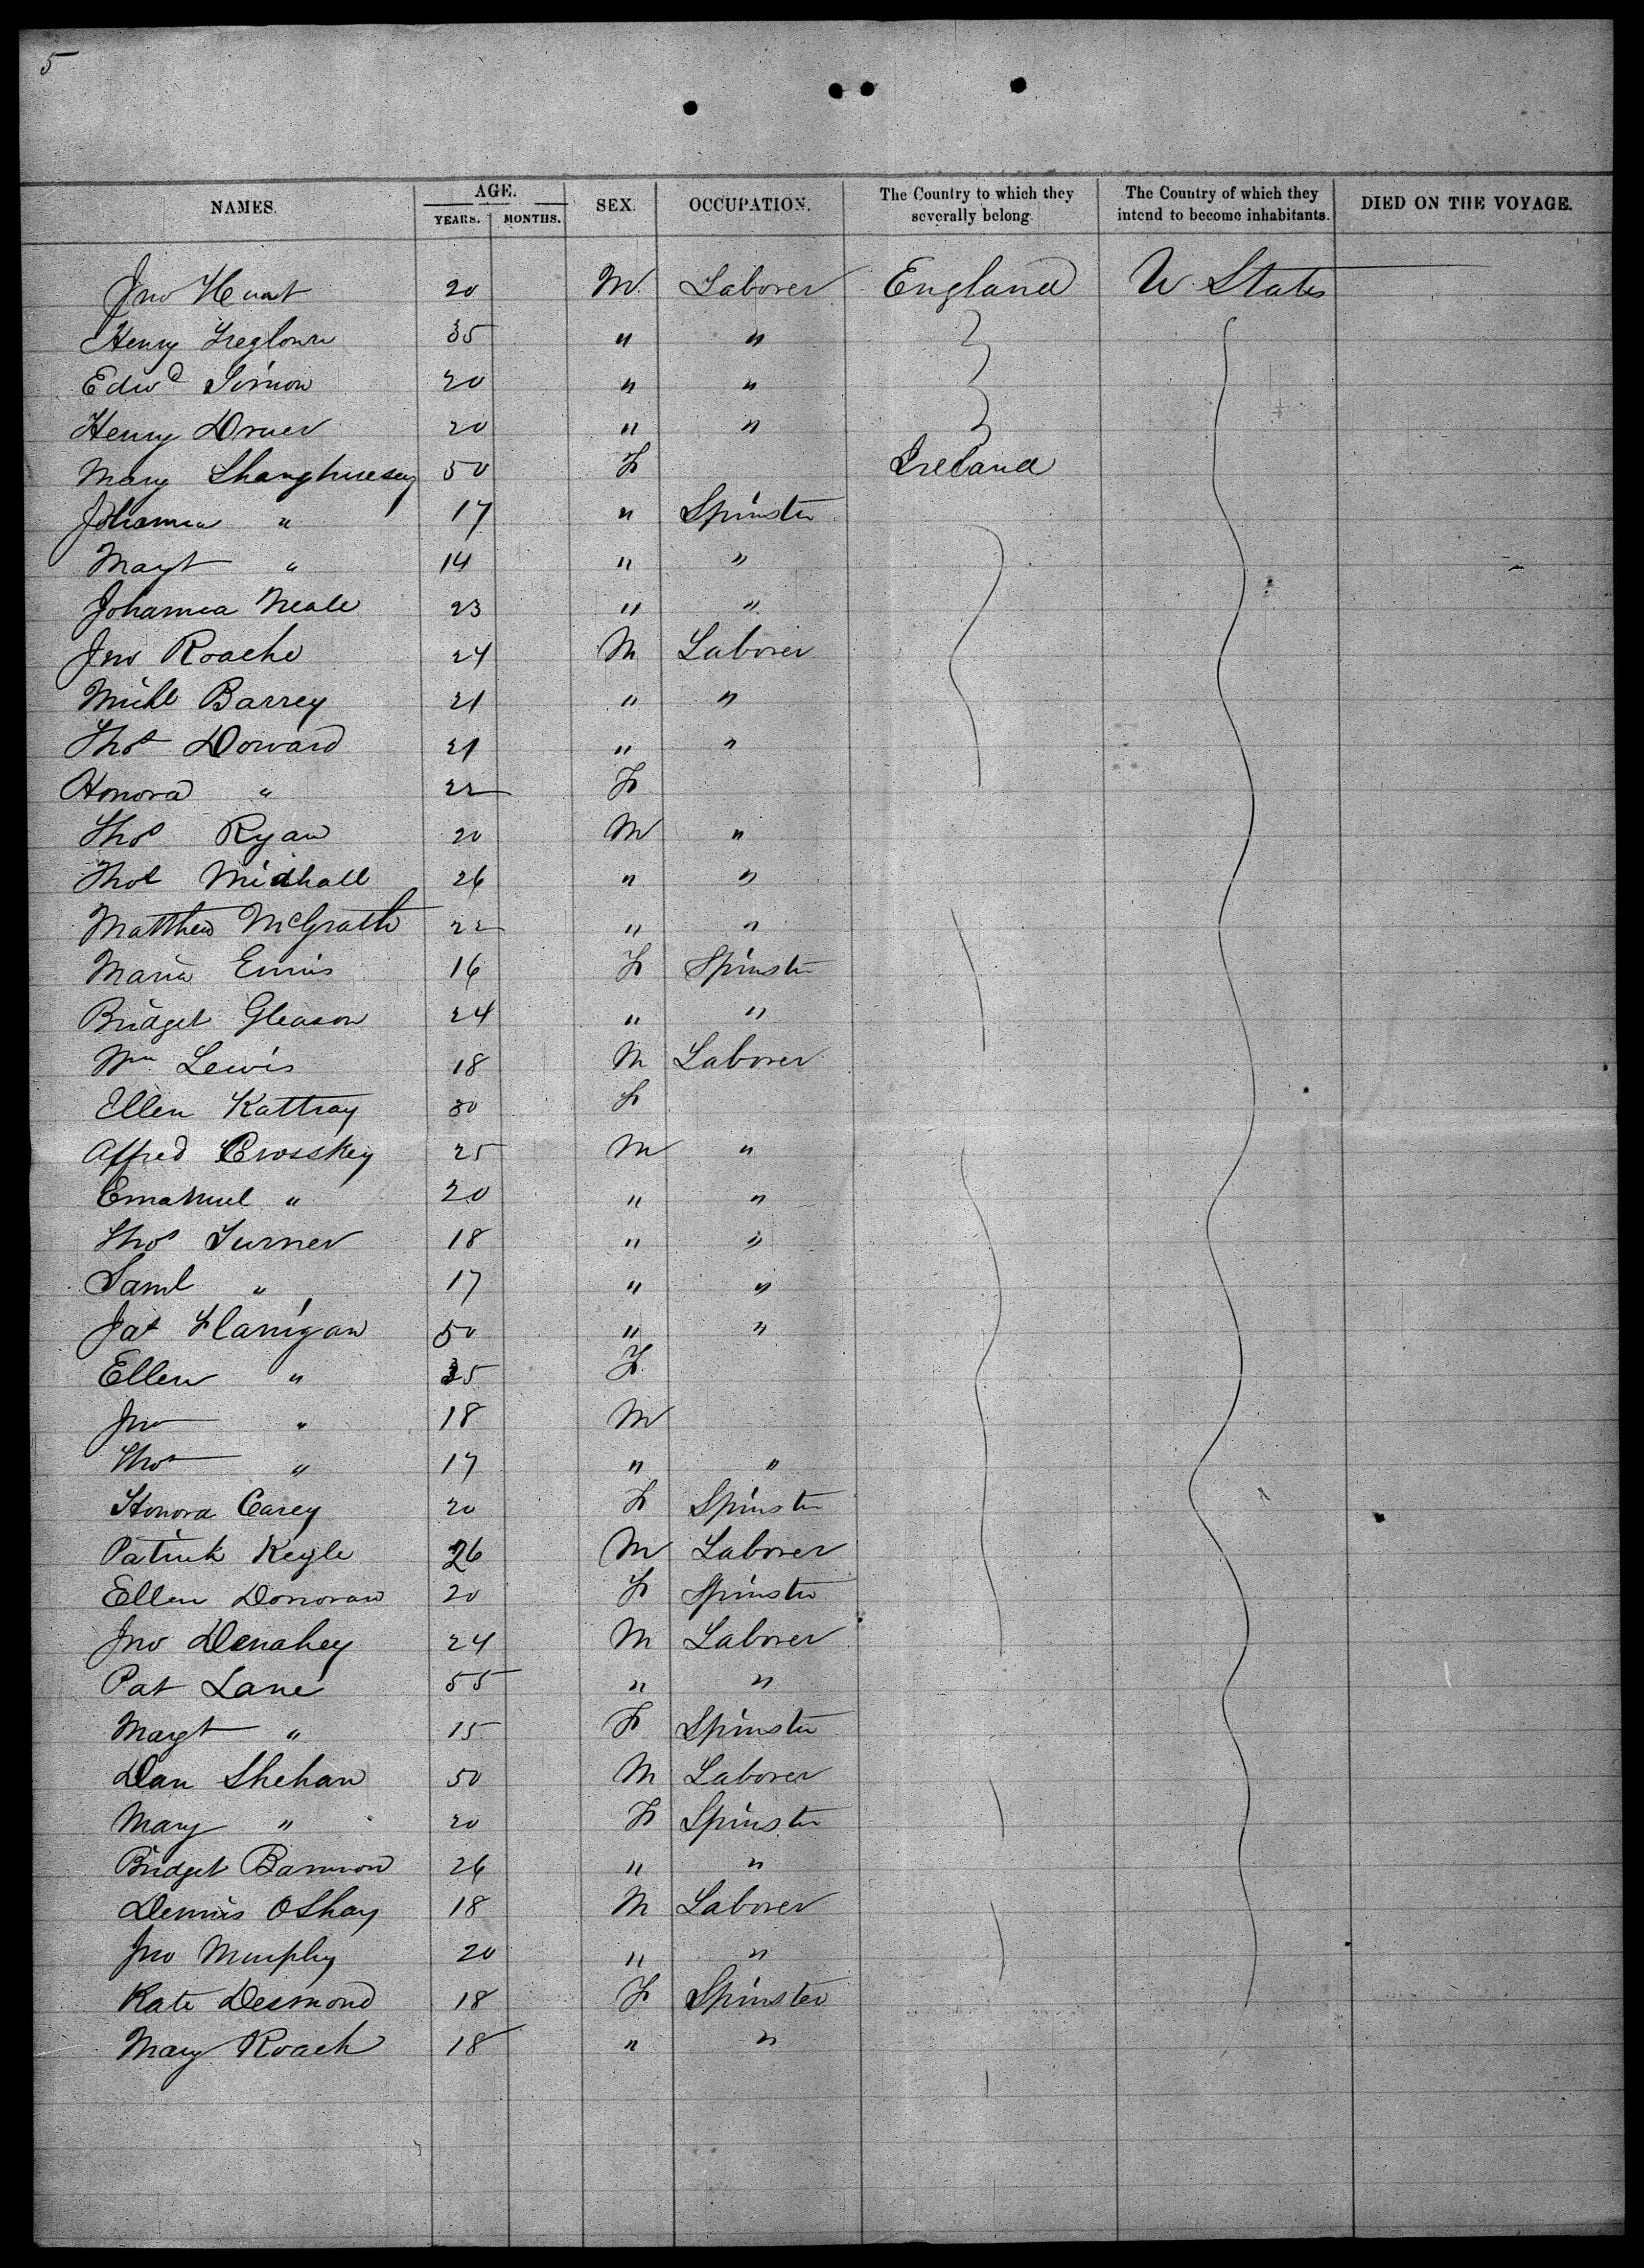 5
NAMES. AGE. YEARS. MONTHS. SEX. OCCUPATION. The Country to which they severally belong. The Country of which they intend to become inhabitants. DIED ON THE VOYAGE.
Jno Hunt 20 M Laborer England U States
Henry Treglown 35 " "
Edwd Simon 20 " "
Henry Druer 20 " "
Mary Shanghnesey 50 F Ireland
Johanna " 17 " Spinster
Magt " 14 " "
Johanna Neale 23 " "
Jno Roache 24 M Laborer
Michl Barrey 21 " "
Thos Dorward 21 " "
Honora " 22 F
Thos Ryan 20 M "
Thos Midhall 26 " "
Matthew McGrath 22 " "
Maria Ennis 16 F Spinster
Bridget Gleason 24 " "
Wm Lewis 18 M Laborer
Ellen Kattray 30 F
Alfred Crosskey 25 M "
Emanuel " 20 " "
Thos Turner 18 " "
Saml " 17 " "
Jas Flanigan 50 " "
Ellen " 35 F
Jno " 18 M
Thos " 17 " "
Honora Carey 20 F Spinster
Patrick Kegle 26 M Laborer
Ellen Donovan 20 F Spinster
Jno Denahey 24 M Laborer
Pat Lane 55 " "
Margt " 15 F Spinster
Dan Shehan 50 M Laborer
Mary " 20 F Spinster
Bridget Bannon 26 " "
Dennis OShay 18 M Laborer
Jno Murphy 20 " "
Kate Desmond 18 F Spinster
Mary Roach 18 " "